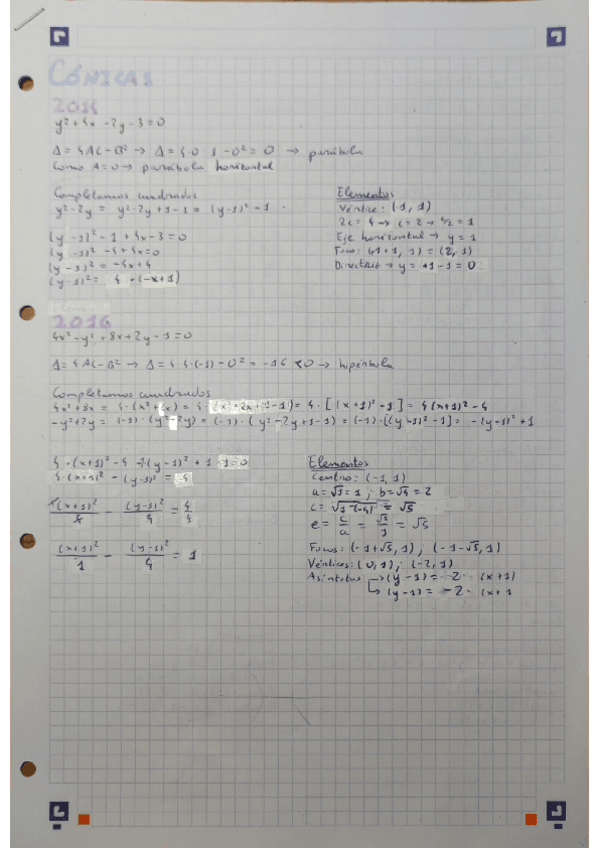 CÓNICAS
2014
y²+4x-2y-3=0
Δ=4AC-B² → Δ=4·0·1-0²=0 → parábola
Como A=0 → parábola horizontal
Completamos cuadrados
y²-2y = y²-2y+1-1 = (y-1)²-1
(y-1)²-1+4x-3=0
(y-1)²-4+4x=0
(y-1)²=-4x+4
(y-1)²= 4·(-x+1)
Elementos
Vértice: (1, 1)
Eje horizontal → y=1
2016
4x²-y²+8x+2y-1=0
Δ=4AC-B² → Δ=4·4·(-1)-0²=-16<0 → hipérbola
Completamos cuadrados
4x²+8x = 4·(x²+2x) = 4·(x²+2x+1-1)= 4·[(x+1)²-1] = 4(x+1)²-4
-y²+2y = (-1)·(y²-2y) = (-1)·(y²-2y+1-1) = (-1)·[(y-1)²-1] = -(y-1)²+1
4·(x+1)²-4-1(y-1)²+1-1=0
4·(x+1)²-(y-1)²=4
4(x+1)²/4 - (y-1)²/4 = 4/4
(x+1)²/1 - (y-1)²/4 = 1
Elementos
Centro: (-1, 1)
a=√1=1; b=√4=2
e = c/a = √5/1 = √5
Focos: (-1+√5, 1); (-1-√5, 1)
Vértices: (0, 1); (-2, 1)
Asíntotas → (y-1) = 2·(x+1)
→ (y-1) = -2·(x+1